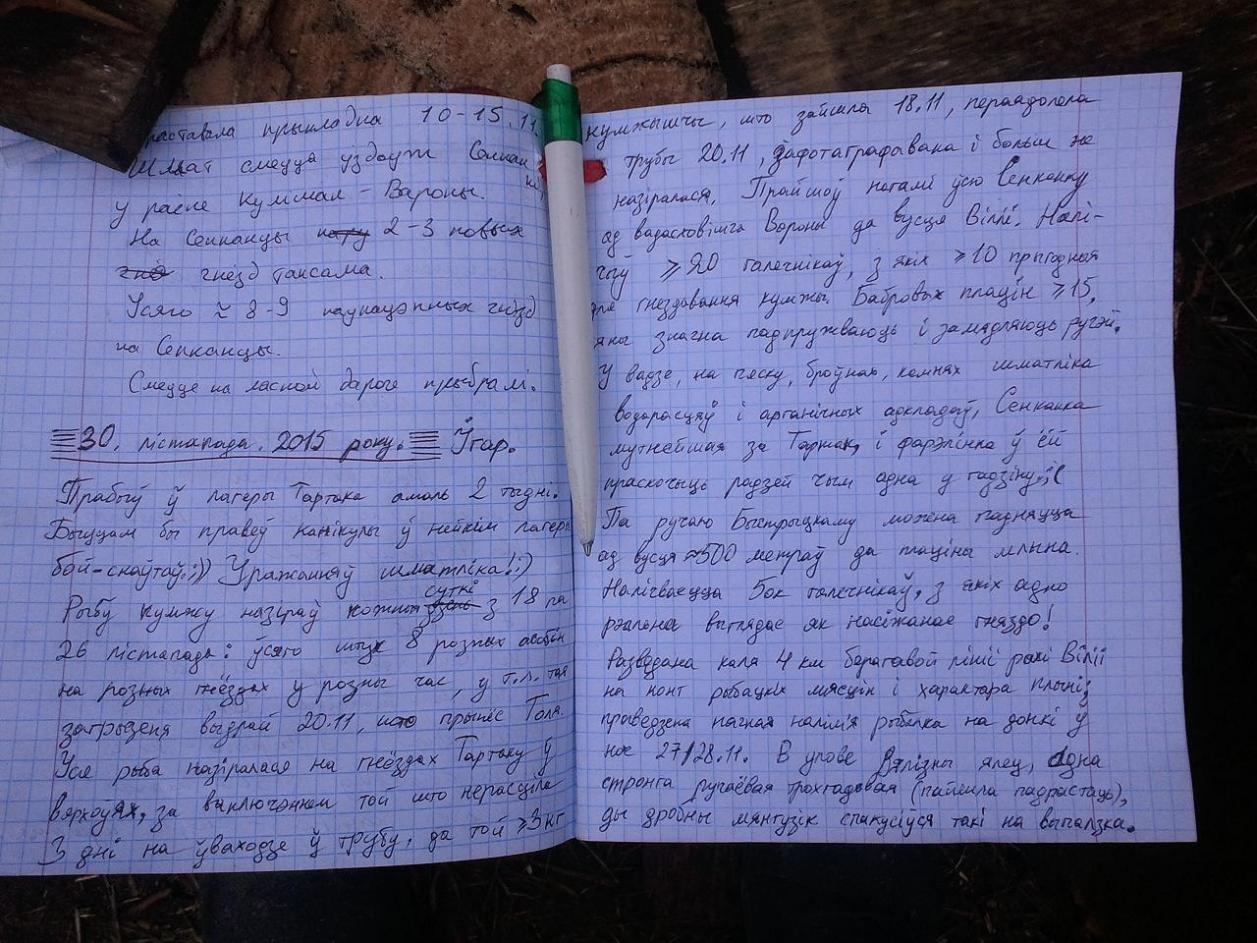 прыкладна 10-15.11.
Шмат смецця уздоўж Сенкан
кі,
у раене Кулімал - Вароны.
На Сенканцы пару 2-3 новых
гнёз гнёзд таксама.
Усяго ≈ 8-9 паўнацэнных гнёзд
на Сенканцы.
Смецце на лясной дароге прыбралі.
30. лістапада. 2015 року. Ігар.
Прабыў ў лагеры Тартака амаль 2 тыдні.
Быццам бы правёў канікулы ў нейкім лагеры
бой-скаўтаў:)) Уражанняў шматліка!:)
суткі
Рыбу кумжу назіраў кожныя дзень з 18 па
26 лістапада: ўсяго штук 8 розных асобін
на розных гнёздах у розны час, у т.л. тая
загрызеня выдрай 20.11, што прынёс Толя.
Уся рыба назіралася на гнёздах Тартаку ў
вярхоўях, за выключэннем той што нерасціла
3 дні на ўваходзе ў трубу, да той ≥3кг
кумжышчы, што зайшла 18.11, пераадолела
трубы 20.11, зафотаграфавана і больш не
назіралася. Прайшоў нагамі ўсю Сенканку
ад вадасховішча Вороны да вусця Віліі. Налі-
чыў ≥20 галечнікаў, з якіх ≥10 прыгодныя
для гнездавання кумжы. Бабровых плацін ≥15,
яны значна падпружваюць і замядляюць ручэй.
У вадзе, на пяску, броўнах, комнях шматліка
водарасцяў і арганічных адкладаў, Сенканка
мутнейшая за Тартак, і фарэлінка ў ёй
праскочыць радзей чым адна у гадзіну.:(
Па ручаю Быстрыцкаму можна падняцца
ад вусця ≈500 метраў да плаціны млына.
Налічваецца 5ок галечнікаў, з якіх адно
рэальна выглядае як насіжанае гняздо!
Разведана каля 4 км берагавой лініі ракі Віліі
на конт рыбацкіх мясцін і характара плыні;
праведзена начная налім'я рыбалка на донкі у
ноч 27/28.11. В улове вялізны ялец, адна
стронга ручаёвая трохгадовая (пайшла падрастаць),
ды дробны мянтузік спакусіўся такі на выпалзка.